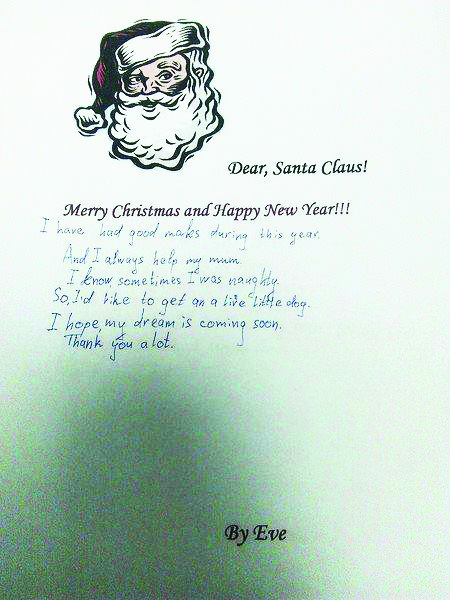 Dear, Santa Claus!
Merry Christmas and Happy New Year!!!
I have had good maks during this year.
And I always help my mum.
I know, sometimes I was naughty.
So, I'd like to get an a live little dog.
I hope, my dream is coming soon.
Thank you a lot.
By Eve